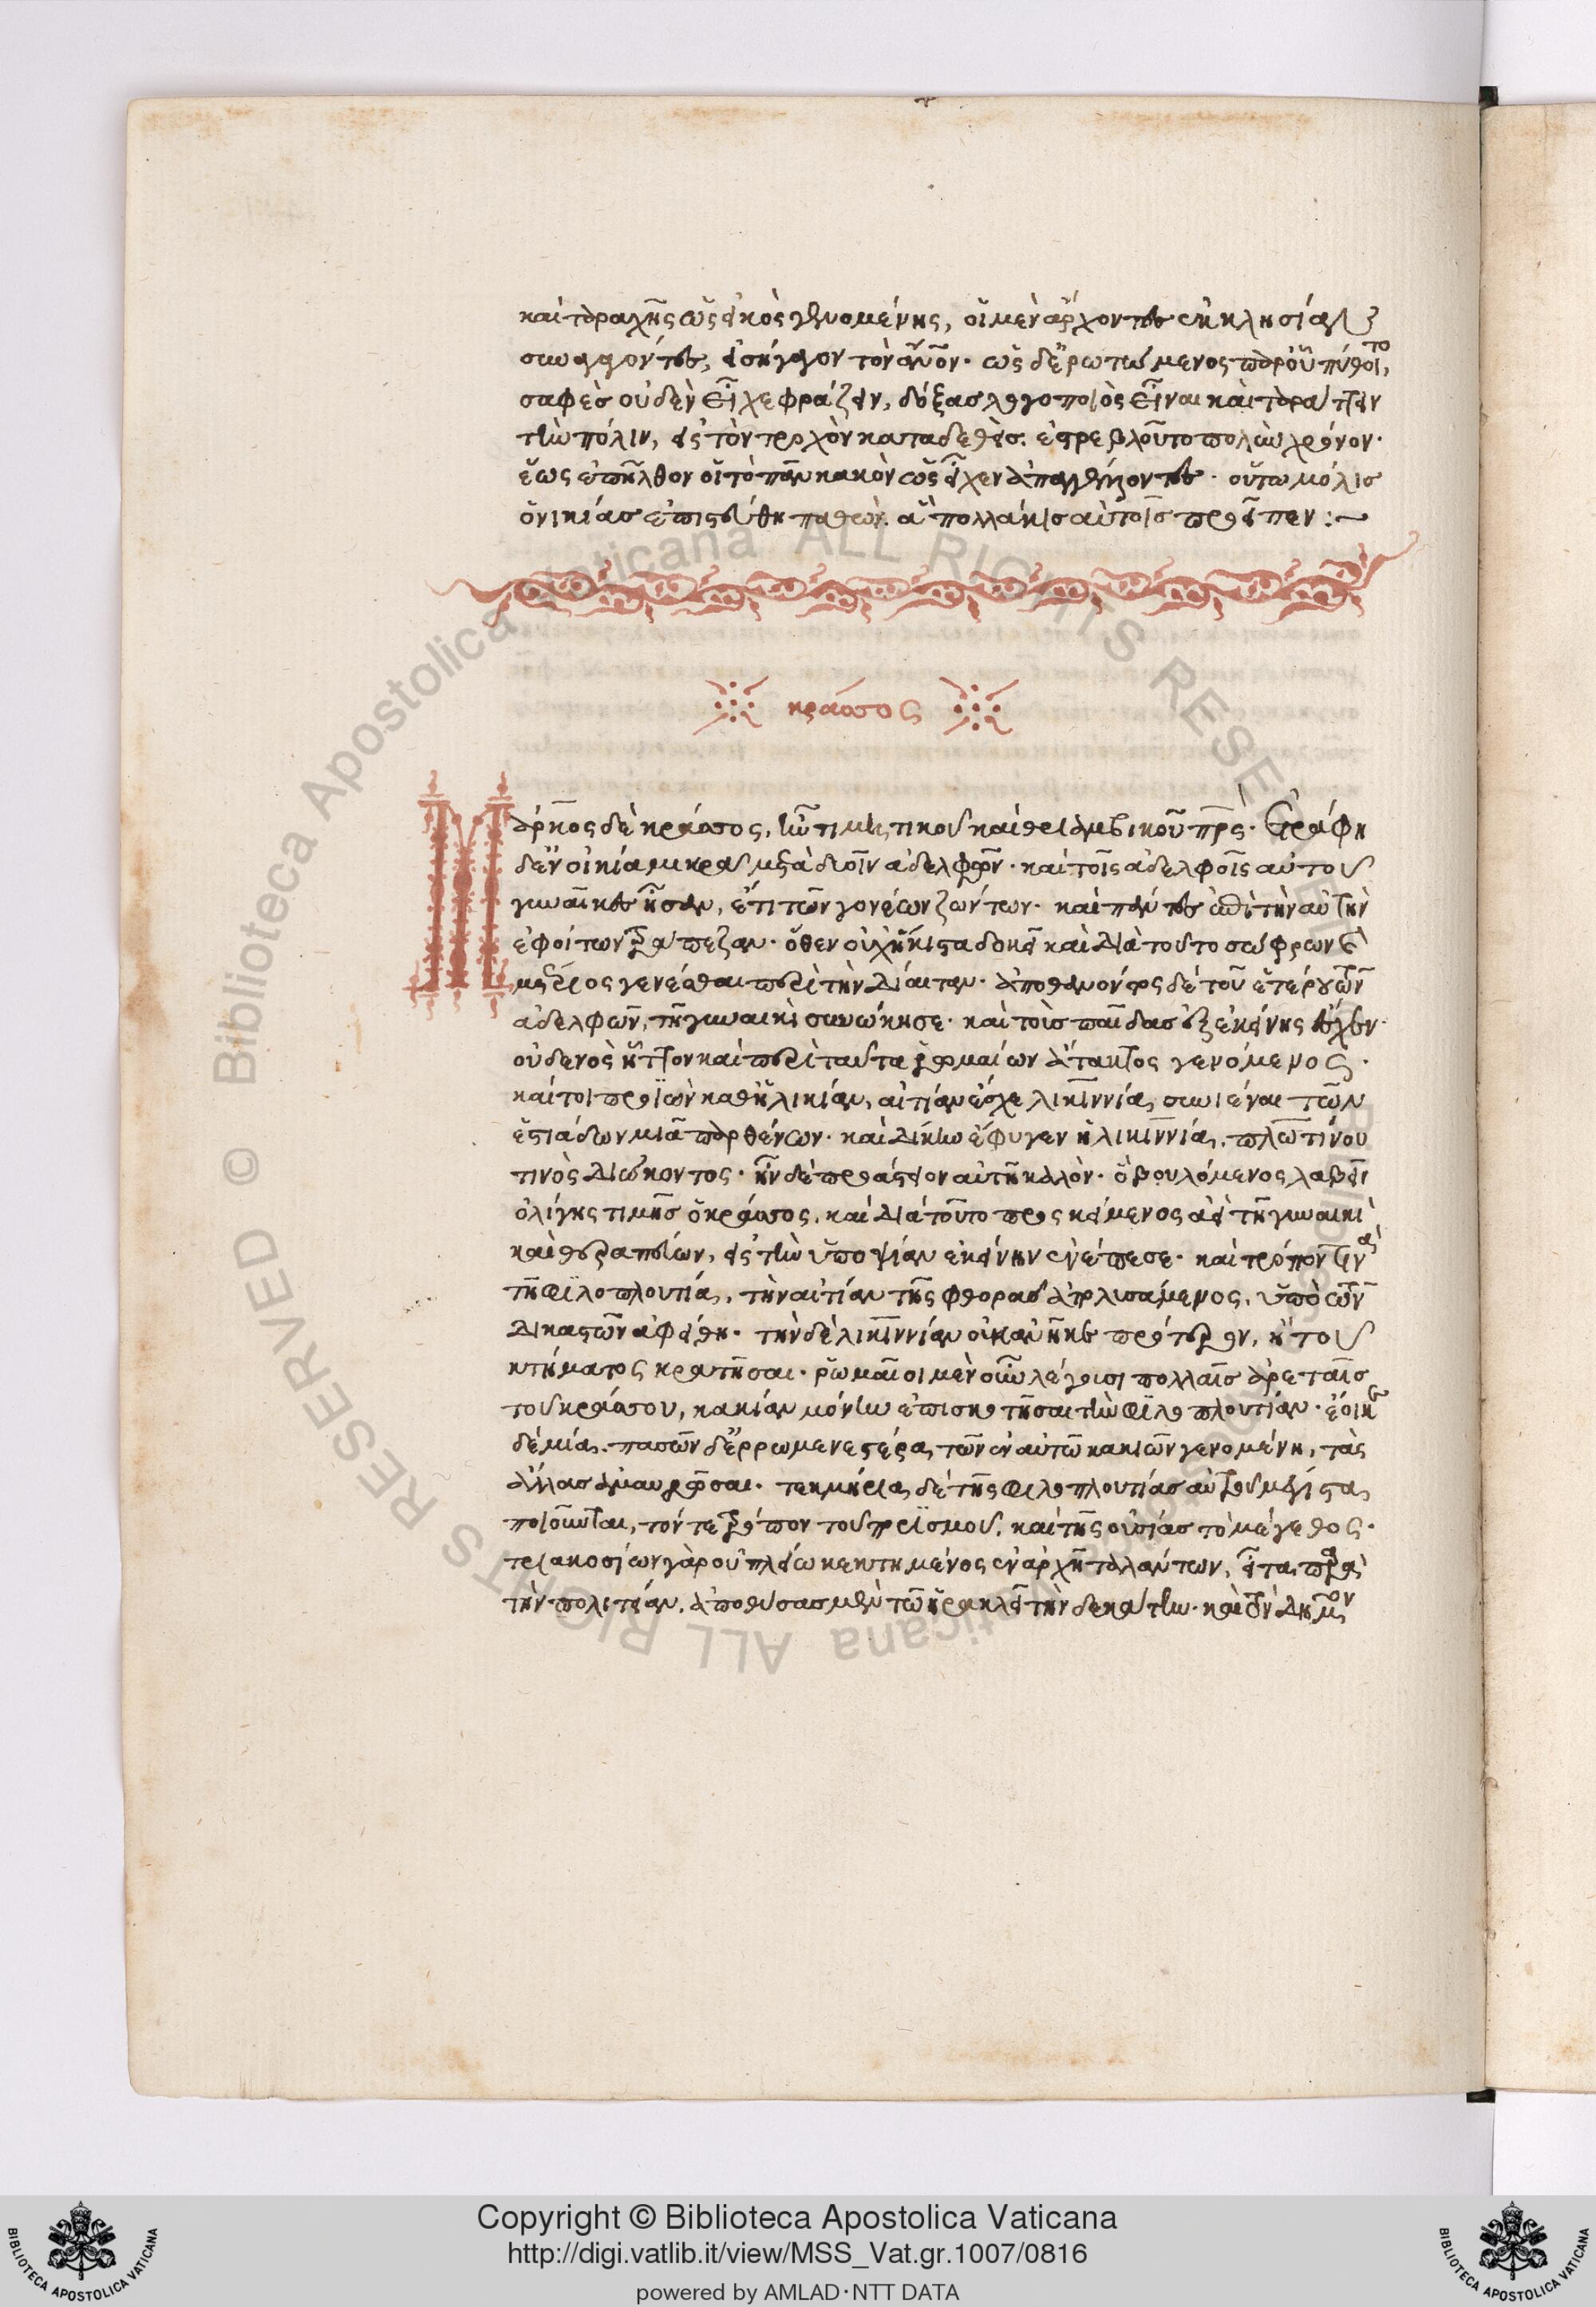 καὶ ταραχῆς ὡς εἰκὸς γενομένης, οἱ μὲν ἄρχοντες ἐκκλησίαν
συναγαγόντες, εἰσήγαγον τὸν ἄνθρωπον· ὡς δ' ἐρωτώμενος παρ' οὗ πύθοιτο,
σαφὲς οὐδὲν εἶχε φράζειν, δόξας λογοποιὸς εἶναι καὶ ταράττειν
τὴν πόλιν, εἰς τὸν τροχὸν καταδεθεὶς ἐστρεβλοῦτο πολὺν χρόνον·
ἕως ἐπῆλθον οἱ τὸ πᾶν κακὸν ὡς εἶχεν ἀπαγγέλλοντες· οὕτω μόλις
ὁ νικίας ἐπιστεύθη παθὼν ἃ πολλάκις αὐτοῖς προεῖπεν :—
κράσσος
Μάρκος δὲ κράσσος, ἦν τιμητικοῦ καὶ θριαμβικοῦ πρς· ἐτράφη
δ' ἐν οἰκίᾳ μικρᾷ μετὰ δυοῖν ἀδελφῶν· καὶ τοῖς ἀδελφοῖς αὐτοῦ
γυναῖκες ἦσαν, ἔτι τῶν γονέων ζώντων· καὶ πάντες ἐπὶ τὴν αὐτὴν
ἐφοίτων τράπεζαν· ὅθεν οὐχ ἥκιστα δοκεῖ καὶ διὰ τοῦτο σώφρων καὶ
μέτριος γενέσθαι περὶ τὴν δίαιταν· ἀποθανόντος δὲ τοῦ ἑτέρου τῶν
ἀδελφῶν, τῇ γυναικὶ συνώκησε· καὶ τοὺς παῖδας ἐξ ἐκείνης ἔσχεν·
οὐδενὸς ἧττον καὶ περὶ ταῦτα ῥωμαίων εὔτακτος γενόμενος·
καίτοι προϊὼν καθ' ἡλικίαν, αἰτίαν ἔσχε λικιννίᾳ συνιέναι τῶν
ἑστιάδων μιᾷ παρθένων· καὶ δίκην ἔφυγεν ἡ λικιννία, πλωτίνου
τινὸς διώκοντος· ἦν δὲ προάστειον αὐτῇ καλὸν· ὃ βουλόμενος λαβεῖν
ὀλίγης τιμῆς ὁ κράσσος, καὶ διὰ τοῦτο προσκείμενος ἀεὶ τῇ γυναικὶ
καὶ θεραπεύων, εἰς τὴν ὑποψίαν ἐκείνην ἐνέπεσε· καὶ τρόπον τινὰ
τῇ φιλοπλουτίᾳ, τὴν αἰτίαν τῆς φθορᾶς ἀπολυσάμενος, ὑπὸ τῶν
δικαστῶν ἀφείθη· τὴν δὲ λικιννίαν οὐκ ἀνῆκε πρότερον, ἢ τοῦ
κτήματος κρατῆσαι· ῥωμαῖοι μὲν οὖν λέγουσι πολλαῖς ἀρεταῖς
τοῦ κράσσου, κακίαν μόνην ἐπισκοτῆσαι τὴν φιλοπλουτίαν· ἔοικε
δὲ μία, πασῶν δ' ἐρρωμενεστέρα τῶν ἐν αὐτῷ κακιῶν γενομένη, τὰς
ἄλλας ἀμαυρῶσαι· τεκμήρια δὲ τῆς φιλοπλουτίας αὐτοῦ μέγιστα
ποιοῦνται, τόν τε τρόπον τοῦ πορισμοῦ, καὶ τῆς οὐσίας τὸ μέγεθος·
τριακοσίων γὰρ οὐ πλείω κεκτημένος ἐν ἀρχῇ ταλάντων, εἶτα παρὰ
τὴν πολιτείαν, ἀποθύσας μὲν τῷ ἡρακλεῖ τὴν δεκάτην· καὶ τὸν δῆμον
Copyright © Biblioteca Apostolica Vaticana
http://digi.vatlib.it/view/MSS_Vat.gr.1007/0816
powered by AMLAD·NTT DATA